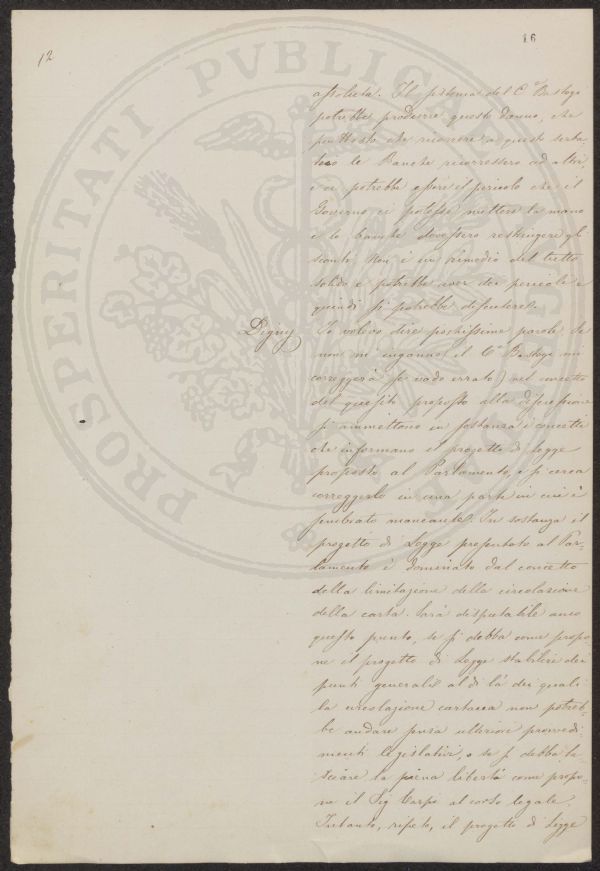 12
16
assoluta. Il sistema del C.e Bastogi
potrebbe produrre questo danno, che
piuttosto che ricorrere a questi serba-
toio le Banche ricorressero ad altri,
e ci potrebbe essere il pericolo che il
Governo ci potesse mettere la mano
e le banche dovessero restringere gli
sconti. Non è un rimedio del tutto
solido e potrebbe aver dei pericoli e
quindi si potrebbe discutere.
Digny
Io volevo dire pochissime parole. Se
non m'inganno (il C.e Bastogi mi
correggerà se vado errato) nel concetto
del quesito proposto alla discussione
si ammettono in sostanza i concetti
che informano il progetto di legge
proposto al Parlamento, e si cerca
correggerlo in una parte in cui è
sembrato mancante. In sostanza il
progetto di Legge presentato al Par-
lamento è dominato dal concetto
della limitazione della circolazione
della carta. Sarà disputabile anco
questo punto, se si debba come propo
ne il progetto di Legge stabilire dei
punti generali al di là dei quali
la circolazione cartacea non potreb-
be andare senza ulteriori provvedi-
menti legislativi, o se si debba la-
sciare la piena libertà come propo-
ne il Sig Carpi al corso legale.
Intanto, ripeto, il progetto di Legge
PROSPERITATI PVBLICAE